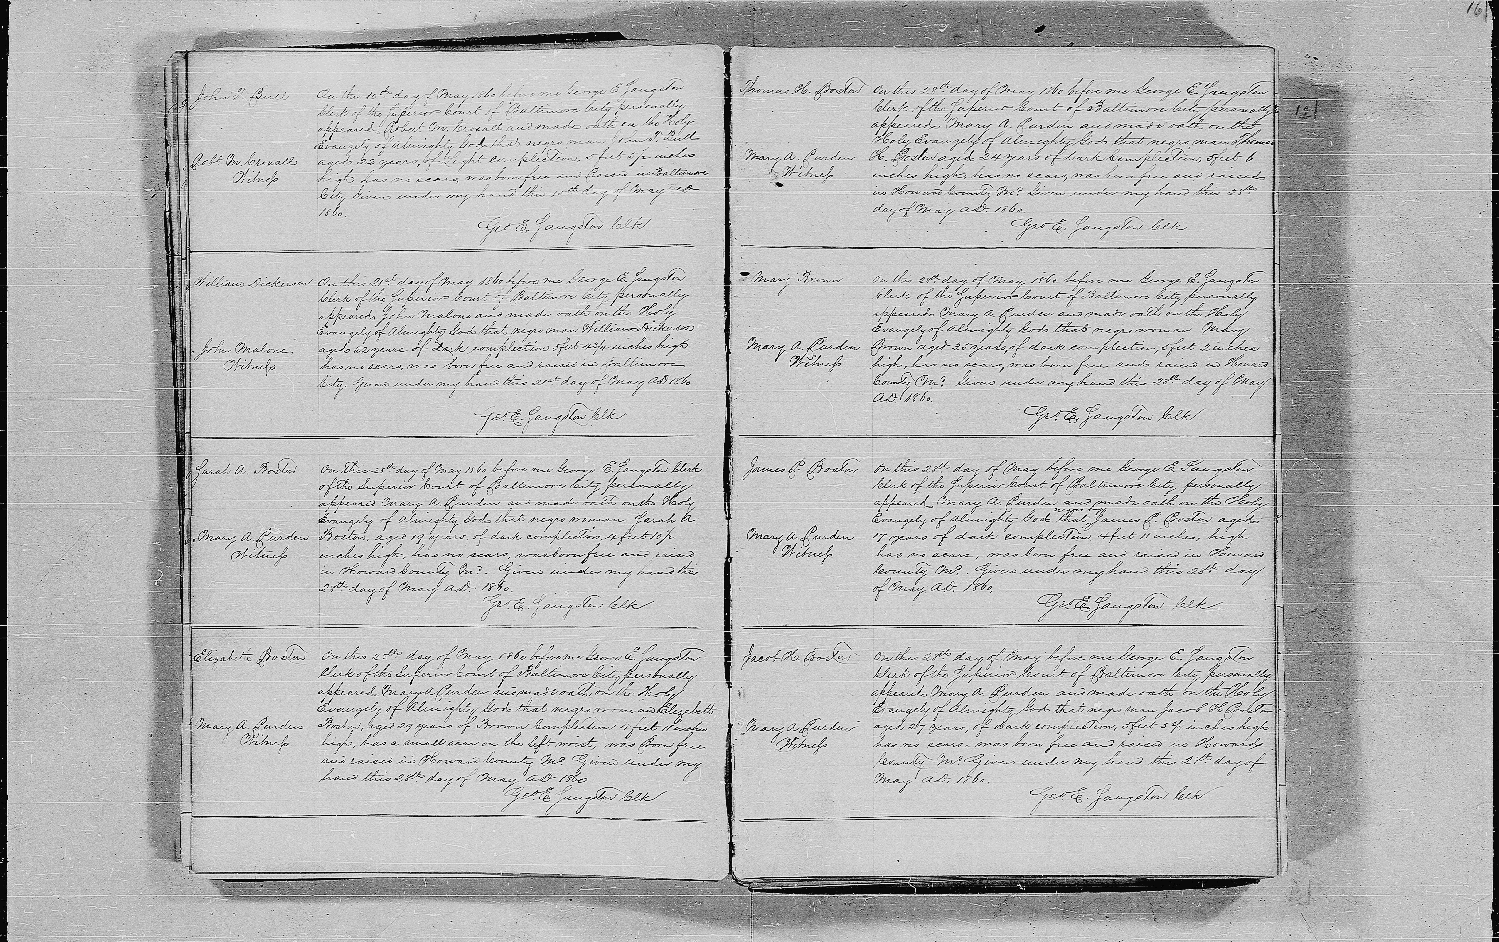 16
John T. Bull
On the 10th day of May 1860 before me George E. Gangston
Clerk of the Superior Court of Baltimore City personally
appeared Robert M. and made oath on the Holy
Evangely of Almighty God that negro man John T. Bull
aged 22 years, of light complection, 5 feet inches
high, has no scars, was born free and raised in Baltimore
City Given under my hand this 10th day of May AD
1860.
Robt M.
Witness
Geo E. Gangston Clk
William Dickerson
On this 21st day of May 1860 before me George E. Gangston
Clerk of the Superior Court of Baltimore City personally
appeared John Malone and made oath on the Holy
Evangely of Almighty God that negro man William Dickerson
aged 62 years of Dark complection 5 feet inches high
has no scars, was born free and raised in Baltimore
City Given under my hand this 21st day of May AD 1860
John Malone
Witness
Geo. E. Gangston Clk
Sarah A. Boston
On this 28th day of May 1860 before me George E. Gangston Clerk
of the Superior Court of Baltimore City personally
appeared Mary A Purden and made oath on the Holy
Evangely of Almighty God that negro woman Sarah A
Boston, aged 19 years of dark complection, 4 feet
inches high, has no scars, was born free and raised
in Howard County Md. Given under my hand this
28th day of May AD. 1860.
Mary A Purden
Witness
Geo E. Gangston Clk
Elizabeth Boston
On this 28th day of May 1860 before me George E Gangston
Clerk of the Superior Court of Baltimore City personally
appeared Mary A Purden and made oath on the Holy
Evangely of Almighty God that negro woman Elizabeth
Boston, aged years of Brown Complection feet inches
high, has a small scar on the left wrist, was Born free
and raised in Howard County Md Given under my
hand this 28th day of May AD 1860
Mary A Purden
Witness
Geo. E Gangston Clk
Thomas H. Boston
On this 28th day of May 1860 before me George E. Gangston
Clerk of the Superior Court of Baltimore City personally
appeared Mary A. Purden and made oath on the
Holy Evangely of Almighty God that negro man Thomas
H. Boston aged 24 years of dark complection, 5 feet 6
inches high, has no scars, was born free and raised
in Howard County Md. Given under my hand this 28th
day of May AD. 1860
Mary A. Purden
Witness
Geo E. Gangston Clk
Mary Brown
On this 28th day of May 1860 before me George E. Gangston
Clerk of the Superior Court of Baltimore City personally
appeared Mary A Purden and made oath on the Holy
Evangely of Almighty God that negro woman Mary
Brown aged 25 years, of dark complection, 5 feet 2 inches
high, has no scars, was born free and raised in Howard
County Md. Given under my hand this 28th day of May
AD 1860.
Mary A Purden
Witness
Geo. E. Gangston Clk
James P. Boston
On this 28th day of May before me George E Gangston
Clerk of the Superior Court of Baltimore City personally
appeared Mary A Purden and made oath on the Holy
Evangely of Almighty God that James P. Boston aged
17 years of dark complection 4 feet 11 inches, high
has no scars, was born free and raised in Howard
County Md. Given under my hand this 28th day
of May AD. 1860.
Mary A Purden
Witness
Geo E. Gangston Clk
Jacob H. Boston
On this 28th day of May before me George E. Gangston
Clerk of the Superior Court of Baltimore City personally
appeared Mary A Purden and made oath on the Holy
Evangely of Almighty God that negro man Jacob H. Boston
aged years, of dark complection, 5 feet inches high
has no scars was born free and raised in Howard
County Md Given under my hand this 28th day of
May AD. 1860.
Mary A Purden
Witness
Geo E. Gangston Clk